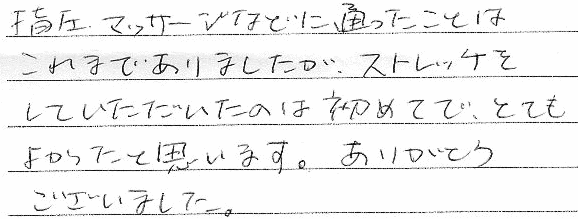 指圧、マッサージなどに通ったことは
これまでありましたが、ストレッチを
していただいたのは初めてで、とても
よかったと思います。ありがとう
ございました。